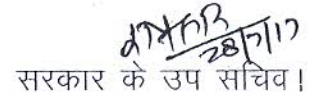 28/7/17
सरकार के उप सचिव।